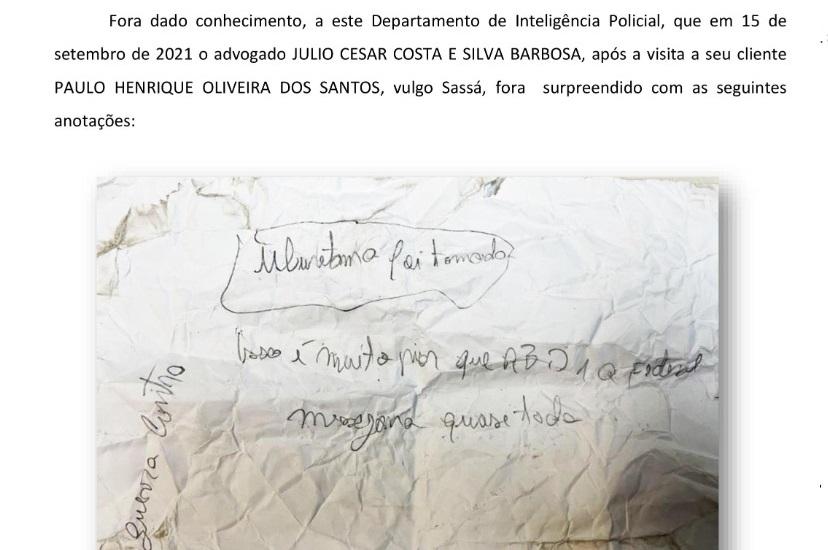 Fora dado conhecimento, a este Departamento de Inteligência Policial, que em 15 de
setembro de 2021 o advogado JULIO CESAR COSTA E SILVA BARBOSA, após a visita a seu cliente
PAULO HENRIQUE OLIVEIRA DOS SANTOS, vulgo Sassá, fora surpreendido com as seguintes
anotações:
foi tomada
é muito pior que Federal
quase toda
Guerra Contra